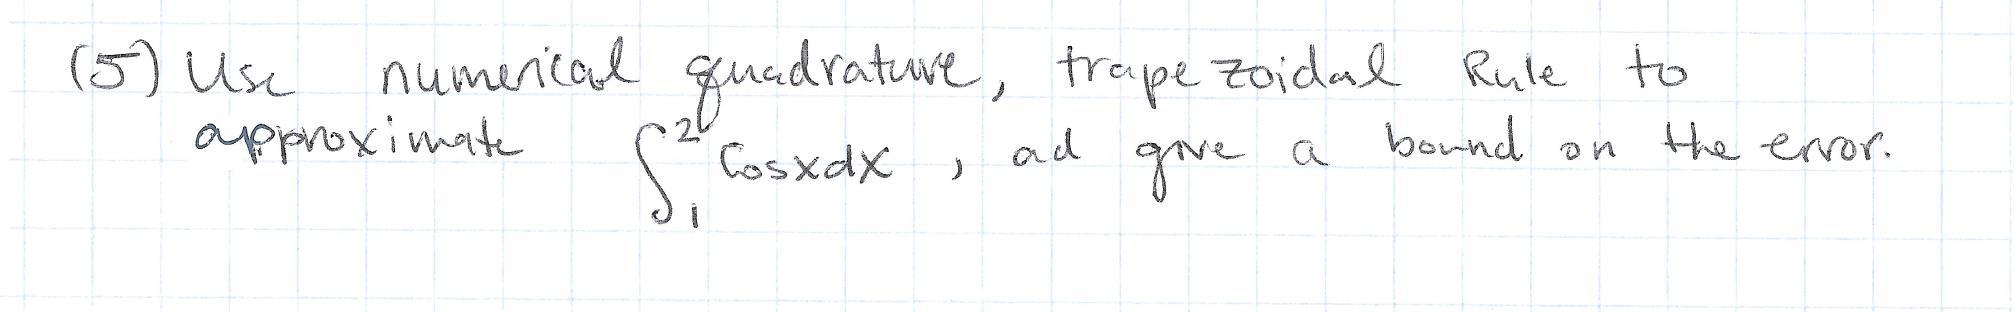 (5) Use numerical quadrature, trapezoidal Rule to
approximate ∫₁² Cosxdx, ad give a bound on the error.